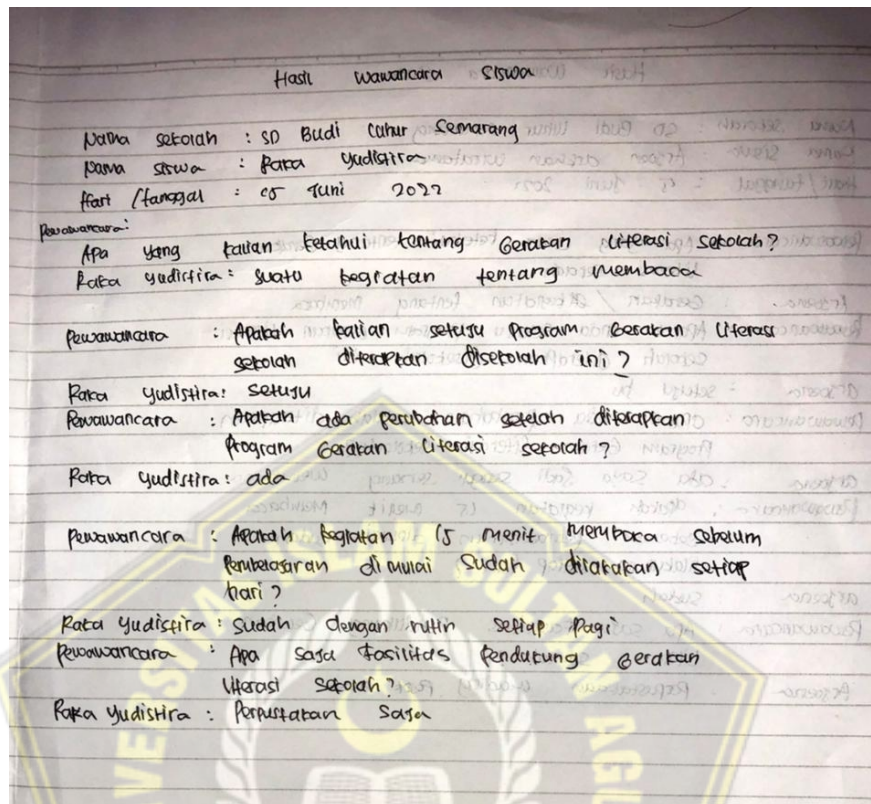 Hasil wawancara siswa
Nama sekolah : SD Budi Luhur Semarang
Nama siswa : Raka Yudistira
Hari /tanggal : 15 Juni 2022
Pewawancara:
Apa yang kalian ketahui tentang Gerakan Literasi sekolah?
Raka yudistira : suatu kegiatan tentang membaca
Pewawancara : Apakah kalian setuju Program Gerakan Literasi
sekolah diterapkan disekolah ini ?
Raka yudistira : setuju
Pewawancara : Apakah ada perubahan setelah diterapkan
Program Gerakan Literasi sekolah ?
Raka yudistira : ada
Pewawancara : Apakah kegiatan 15 menit membaca sebelum
Pembelajaran di mulai sudah dilakakan setiap
hari ?
Raka yudistira : Sudah dengan rutin setiap Pagi
Pewawancara : Apa saja fasilitas pendukung Gerakan
Literasi sekolah ?
Raka yudistira : Perpustakan saja
VERSITAS ISLAM SULTAN AGU